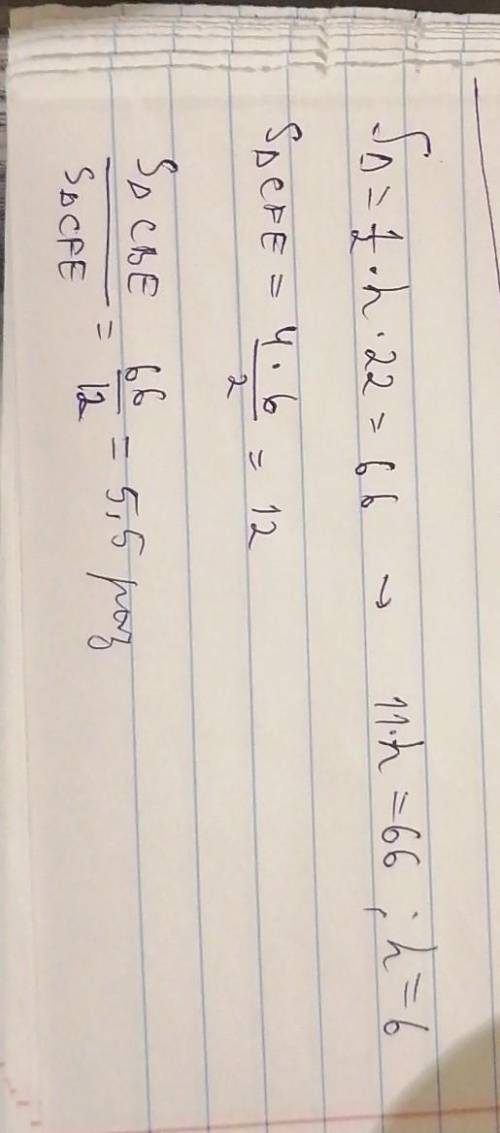 S△ = 1/2 · h · 22 = 66 → 11·h = 66 ; h = 6
S△CFE = 4·6/2 = 12
S△CBE/S△CFE = 66/12 = 5,5 раз